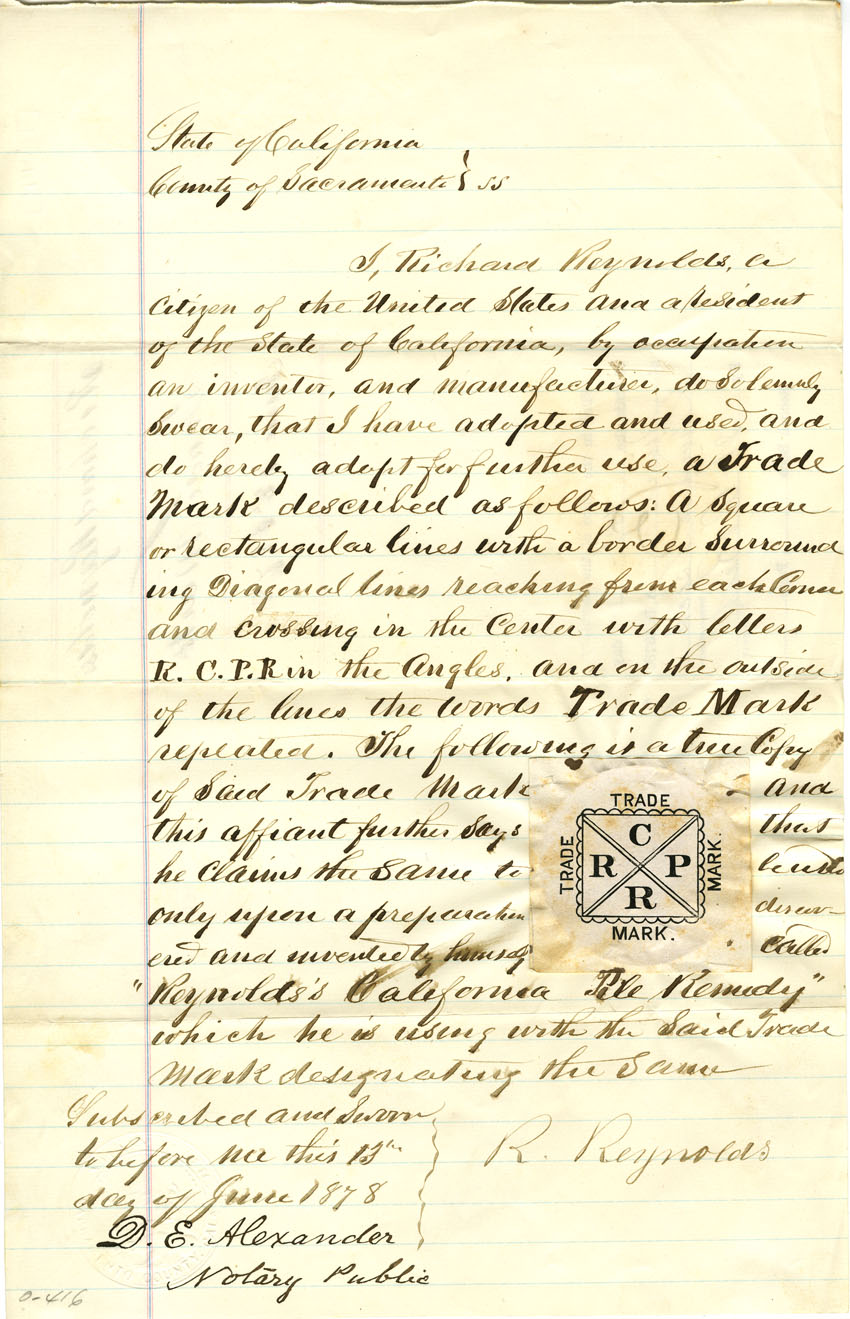 State of California
County of Sacramento } ss
I, Richard Reynolds, a
Citizen of the United States and a resident
of the State of California, by occupation
an inventor, and manufacturer, do Solemnly
Swear, that I have adopted and used, and
do hereby adopt for further use, a Trade
Mark described as follows: A Square
or rectangular lines with a border Surround
ing Diagonal lines reaching from each Corner
and crossing in the Center with letters
R. C. P. R in the Angles, and on the outside
of the lines the words Trade Mark
repeated. The following is a true Copy
of Said Trade Mark and
this affiant further Says that
he Claims the Same to
only upon a preparation discov-
ered and invented by himself Called
"Reynolds's California Pile Remedy"
which he is using with the Said Trade
Mark designating the Same
TRADE
TRADE
MARK.
MARK.
C
R P
R
Subscribed and Sworn
to before me this 13th
day of June 1878
R. Reynolds
D. E. Alexander
Notary Public
0-416